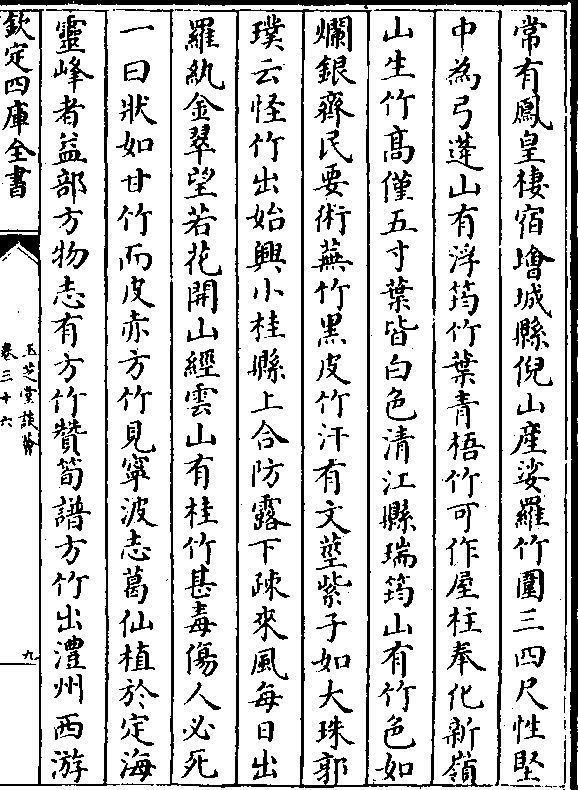 常有鳳皇棲宿增城縣倪山産娑羅竹圍三四尺性堅
中為弓蓬山有浮筠竹葉青梧竹可作屋柱奉化新嶺
山生竹髙僅五寸葉皆白色清江縣瑞筠山有竹色如
爛銀齊民要術蕪竹黑皮竹汗有文䔲紫子如大珠郭
璞云怪竹出始興小桂縣上合防露下疎來風每日出
羅紈金翠望若花開山經雲山有桂竹甚毒傷人必死
一曰狀如甘竹而皮赤方竹見寧波志葛仙植於定海
靈峰者益部方物志有方竹贊筍譜方竹出澧州西游
欽定四庫全書
玉芝堂談薈
卷三十六
九